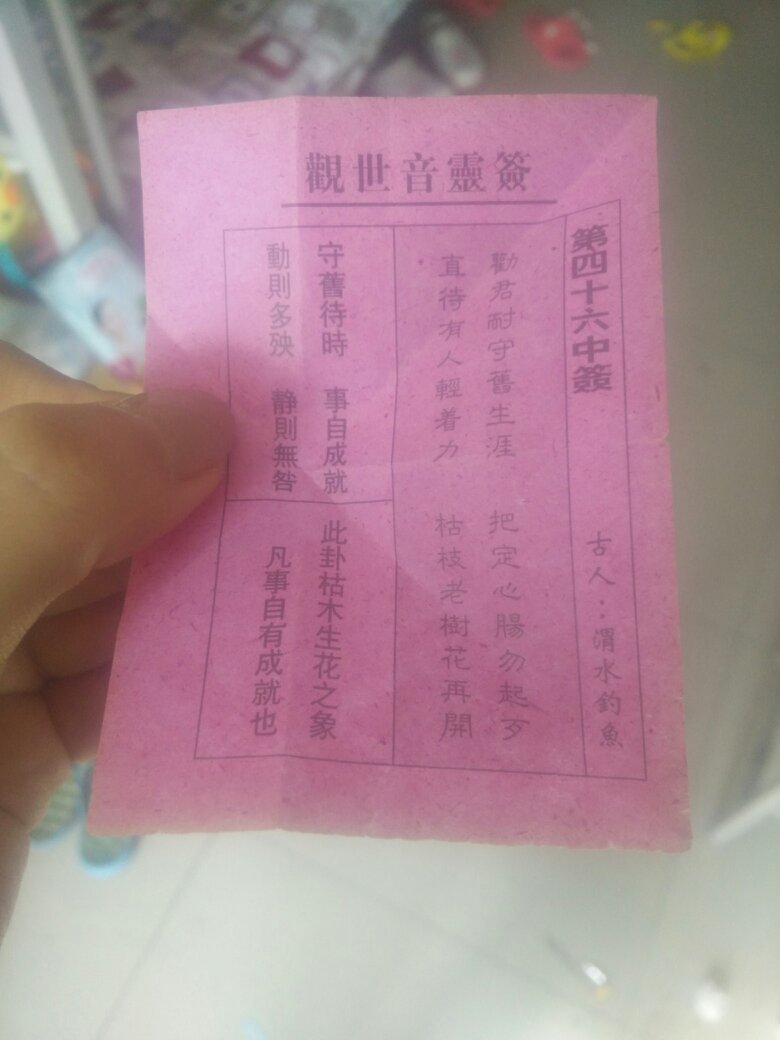 觀世音靈簽
第四十六中簽 古人：渭水釣魚
勸君耐守舊生涯 把定心腸勿起歹
直待有人輕着力 枯枝老樹花再開
守舊待時 事自成就
動則多殃 靜則無咎
此卦枯木生花之象
凡事自有成就也